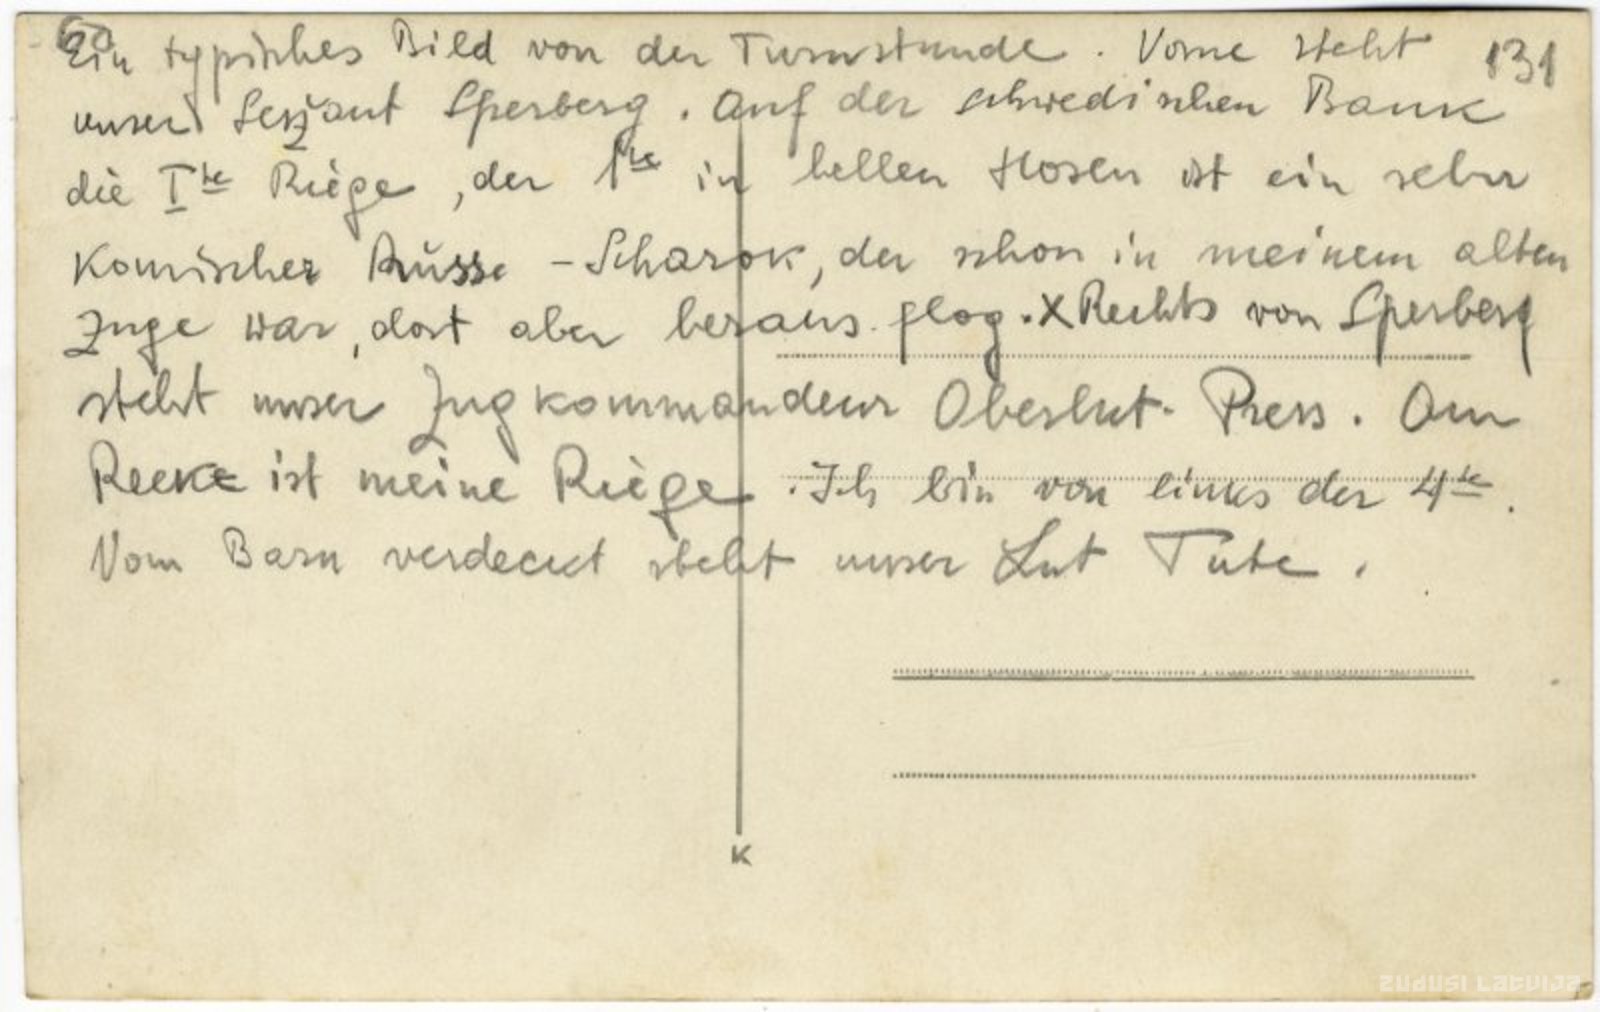 Ein typisches Bild von der Turnstunde. Vorne steht 131
unser Serjant Sperberg. Auf der schwedischen Bank
die I te Riege, der 1 te in hellen Hosen ist ein sehr
Komischer Russe - Scharok, der schon in meinem alten
Zuge war, dort aber heraus flog. X Rechts von Sperberg
steht unser Zugkommandeur Oberlut. Press. Am
Recke ist meine Riege. Ich bin von links der 4 te.
Vom Barn verdeckt steht unser Lut Tute.
K
zudusi Latvija